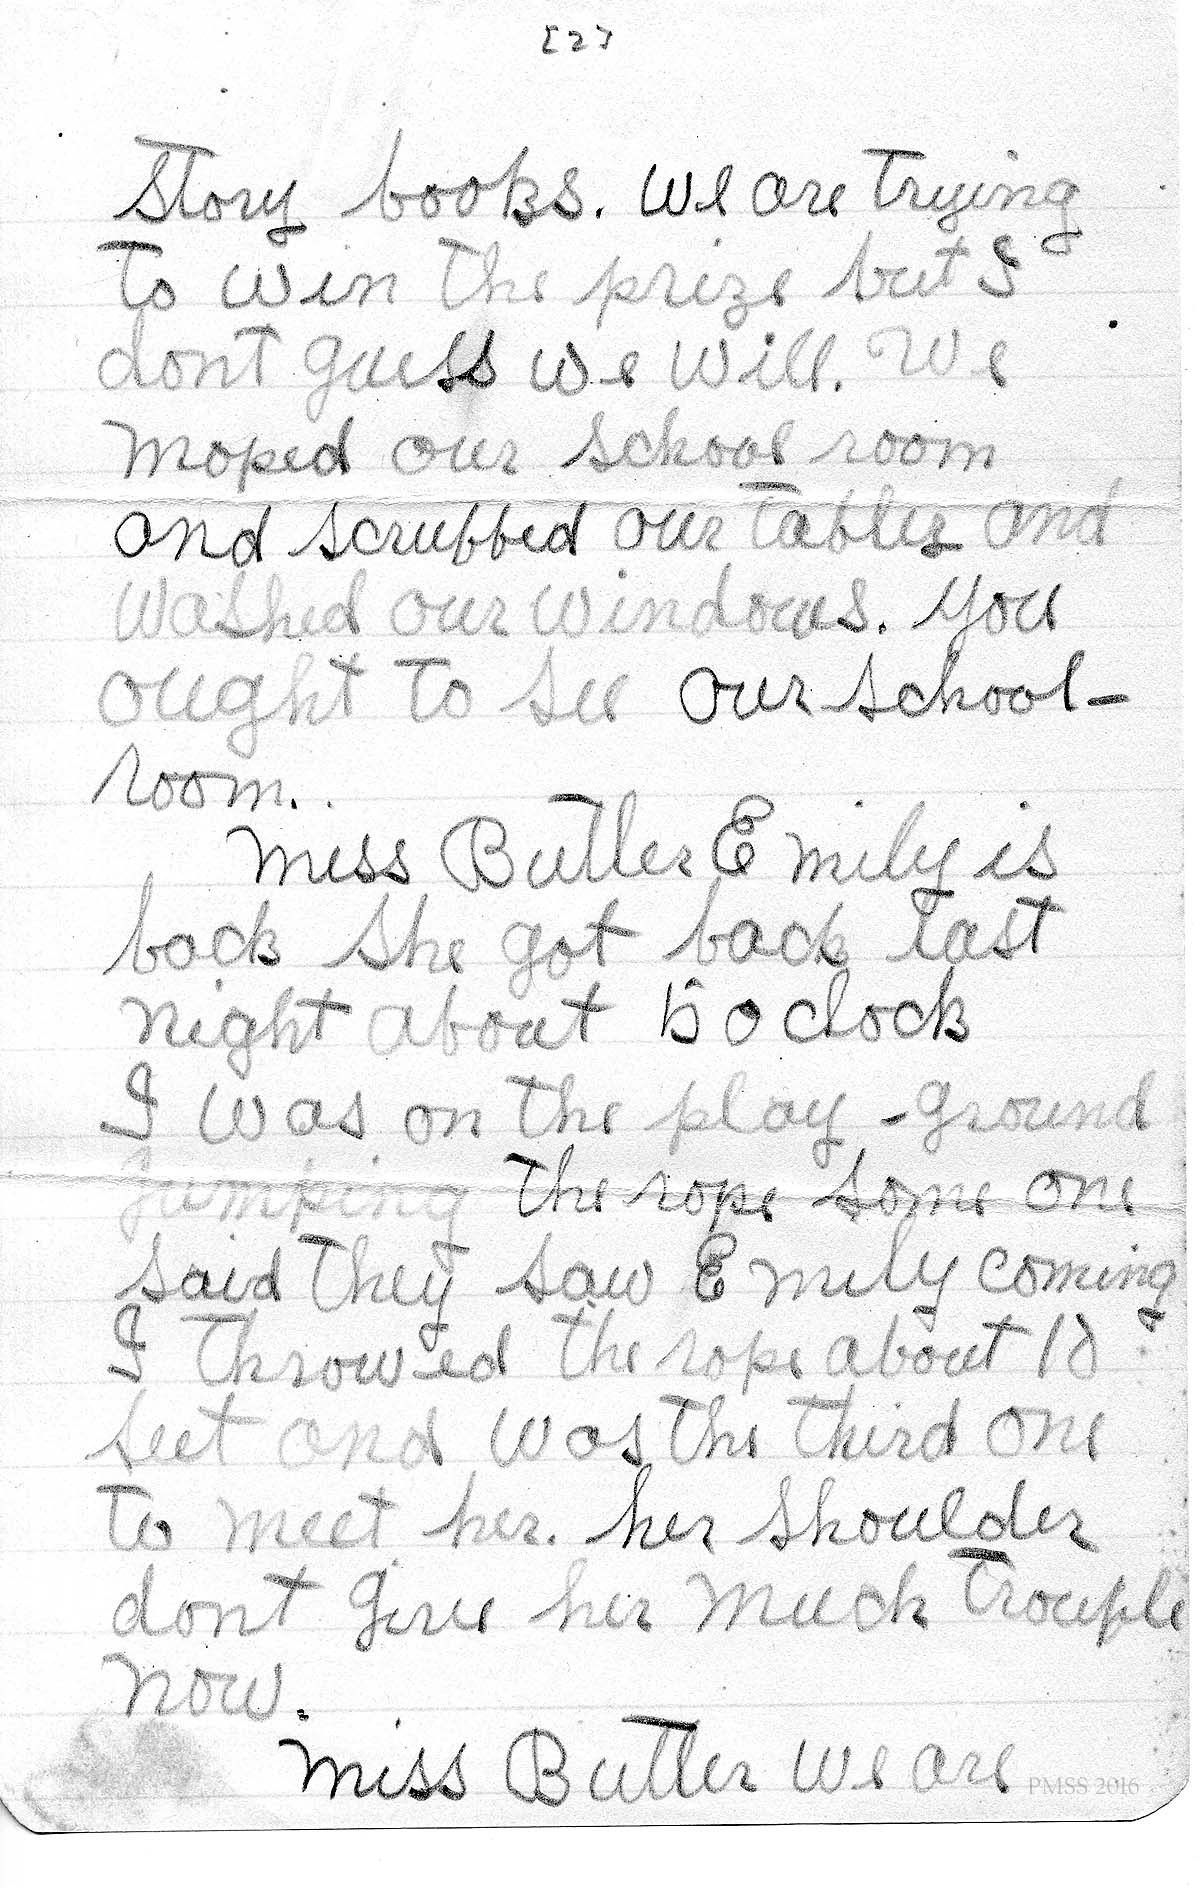 [2]
Story books. We are trying
to win the prize but I
dont guess we will. We
moped our school room
and scrubbed our tables and
washed our windows. You
ought to see our school-
room.
Miss Butler Emily is
back she got back last
night about 5 o clock
I was on the play-ground
jumping the rope some one
said they saw Emily coming
I throwed the rope about 10
feet and was the third one
to meet her. her shoulder
dont give her much trouple
now.
Miss Butler we are
PMSS 2016